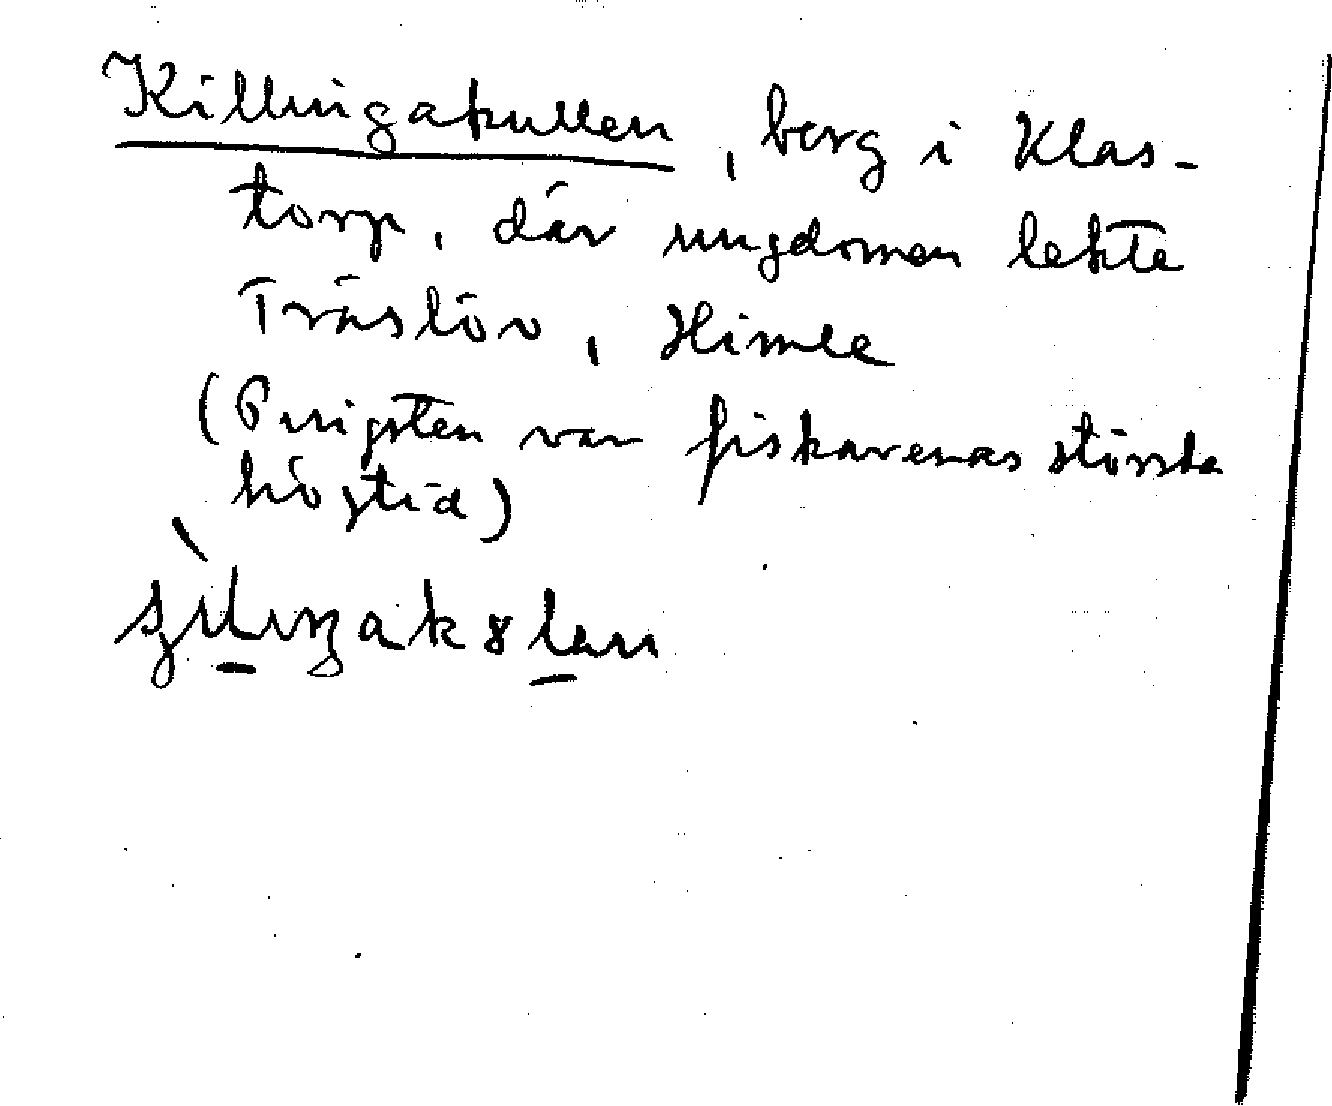 Killingakullen, berg i Klas-
torp, där ungdomen lekte
Träslöv, Himle
(Pingsten var fiskarenas största
högtid)